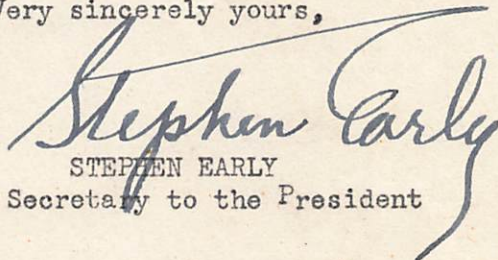 Very sincerely yours,
Stephen Early
STEPHEN EARLY
Secretary to the President